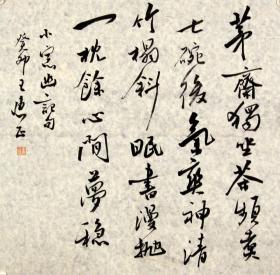 茅齋獨坐茶頻煮
七碗後氣爽神清
竹榻斜眠書漫拋
一枕餘心閒夢穩
小窗幽記句
癸卯王正